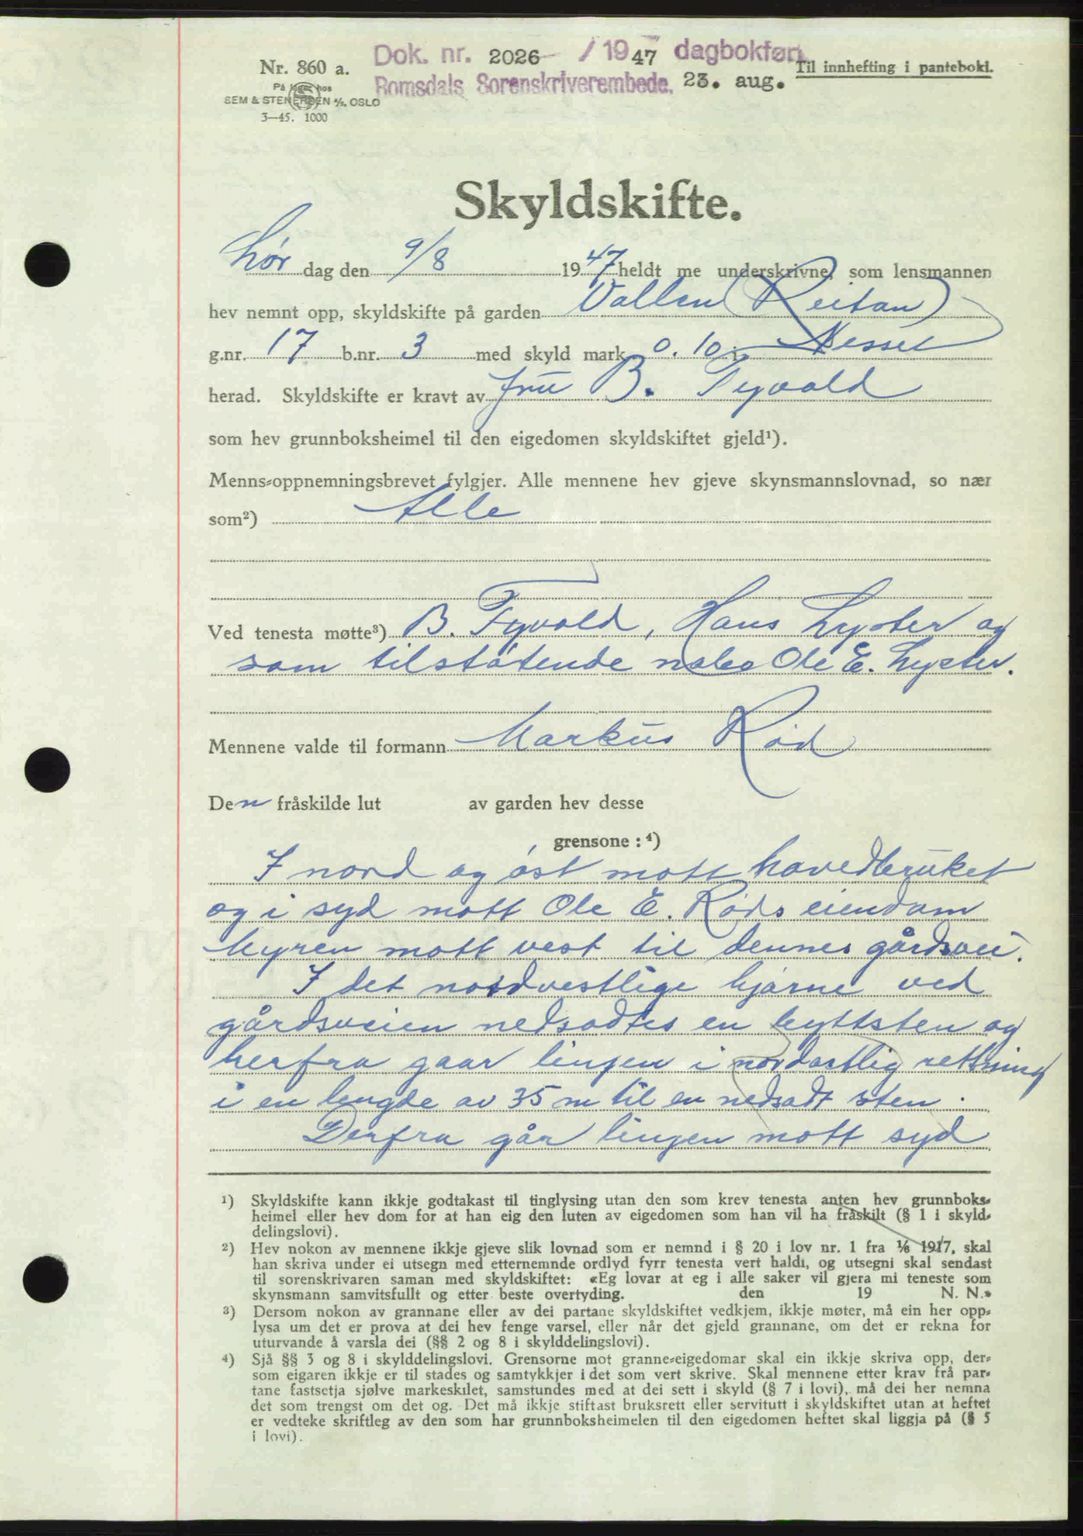 Dok. nr. 2026 / 1947 dagbokført
Nr. 860 a.
Til innhefting i pantebokí.
Romsdals Sorenskriverembede. 23. aug.
På lager hos
SEM & STENERSEN A/S, OSLO
3—45. 1000
Skyldskifte.
Lør dag den 9/8 1947 heldt me underskrivne, som lensmannen
hev nemnt opp, skyldskifte på garden Vollen (Reitan)
g.nr. 17 b.nr. 3 med skyld mark 0.10 i Nesset
herad. Skyldskifte er kravt av fru B. Tyvold
som hev grunnboksheimel til den eigedomen skyldskiftet gjeld¹).
Menns-oppnemningsbrevet fylgjer. Alle mennene hev gjeve skynsmannslovnad, so nær
som²) Alle
Ved tenesta møtte³) B. Tyvold, Hans Lyster og
som tilstøtende nabo Ole E. Lyster.
Mennene valde til formann Markus Rød
Den fråskilde lut av garden hev desse
grensone : ⁴)
I nord og øst mott hovedbruket
og i syd mott Ole E. Røds eiendom
Myren mott vest til dennes gårdsvei.
I det nordvestlige hjørne ved
gårdsveien nedsadtes en byttsten og
herfra gaar linjen i nordostlig rettning
i en lengde av 35 m til en nedsadt sten.
Derfra går linjen mott syd
¹) Skyldskifte kann ikkje godtakast til tinglysing utan den som krev tenesta anten hev grunnboks-
heimel eller hev dom for at han eig den luten av eigedomen som han vil ha fråskilt (§ 1 i skyld-
delingslovi).
²) Hev nokon av mennene ikkje gjeve slik lovnad som er nemnd i § 20 i lov nr. 1 fra 1/6 1917, skal
han skriva under ei utsegn med etternemnde ordlyd fyrr tenesta vert haldi, og utsegni skal sendast
til sorenskrivaren saman med skyldskiftet: «Eg lovar at eg i alle saker vil gjera mi teneste som
skynsmann samvitsfullt og etter beste overtyding. den 19 N. N.»
³) Dersom nokon av grannane eller av dei partane skyldskiftet vedkjem, ikkje møter, må ein her opp-
lysa um det er prova at dei hev fenge varsel, eller når det gjeld grannane, om det er rekna for
uturvande å varsla dei (§§ 2 og 8 i skylddelingslovi).
⁴) Sjå §§ 3 og 8 i skylddelingslovi. Grensorne mot granne-eigedomar skal ein ikkje skriva opp, der-
som eigaren ikkje er til stades og samtykkjer i det som vert skrive. Skal mennene etter krav frå par-
tane fastsetja sjølve markeskilet, samstundes med at dei sett i skyld (§ 7 i lovi), må dei her nemna
det som trengst om det og. Det må ikkje stiftast bruksrett eller servitutt i skyldskiftet utan at heftet
er vedteke skriftleg av den som har grunnboksheimelen til den eigedomen heftet skal liggja på (§ 5
i lovi).